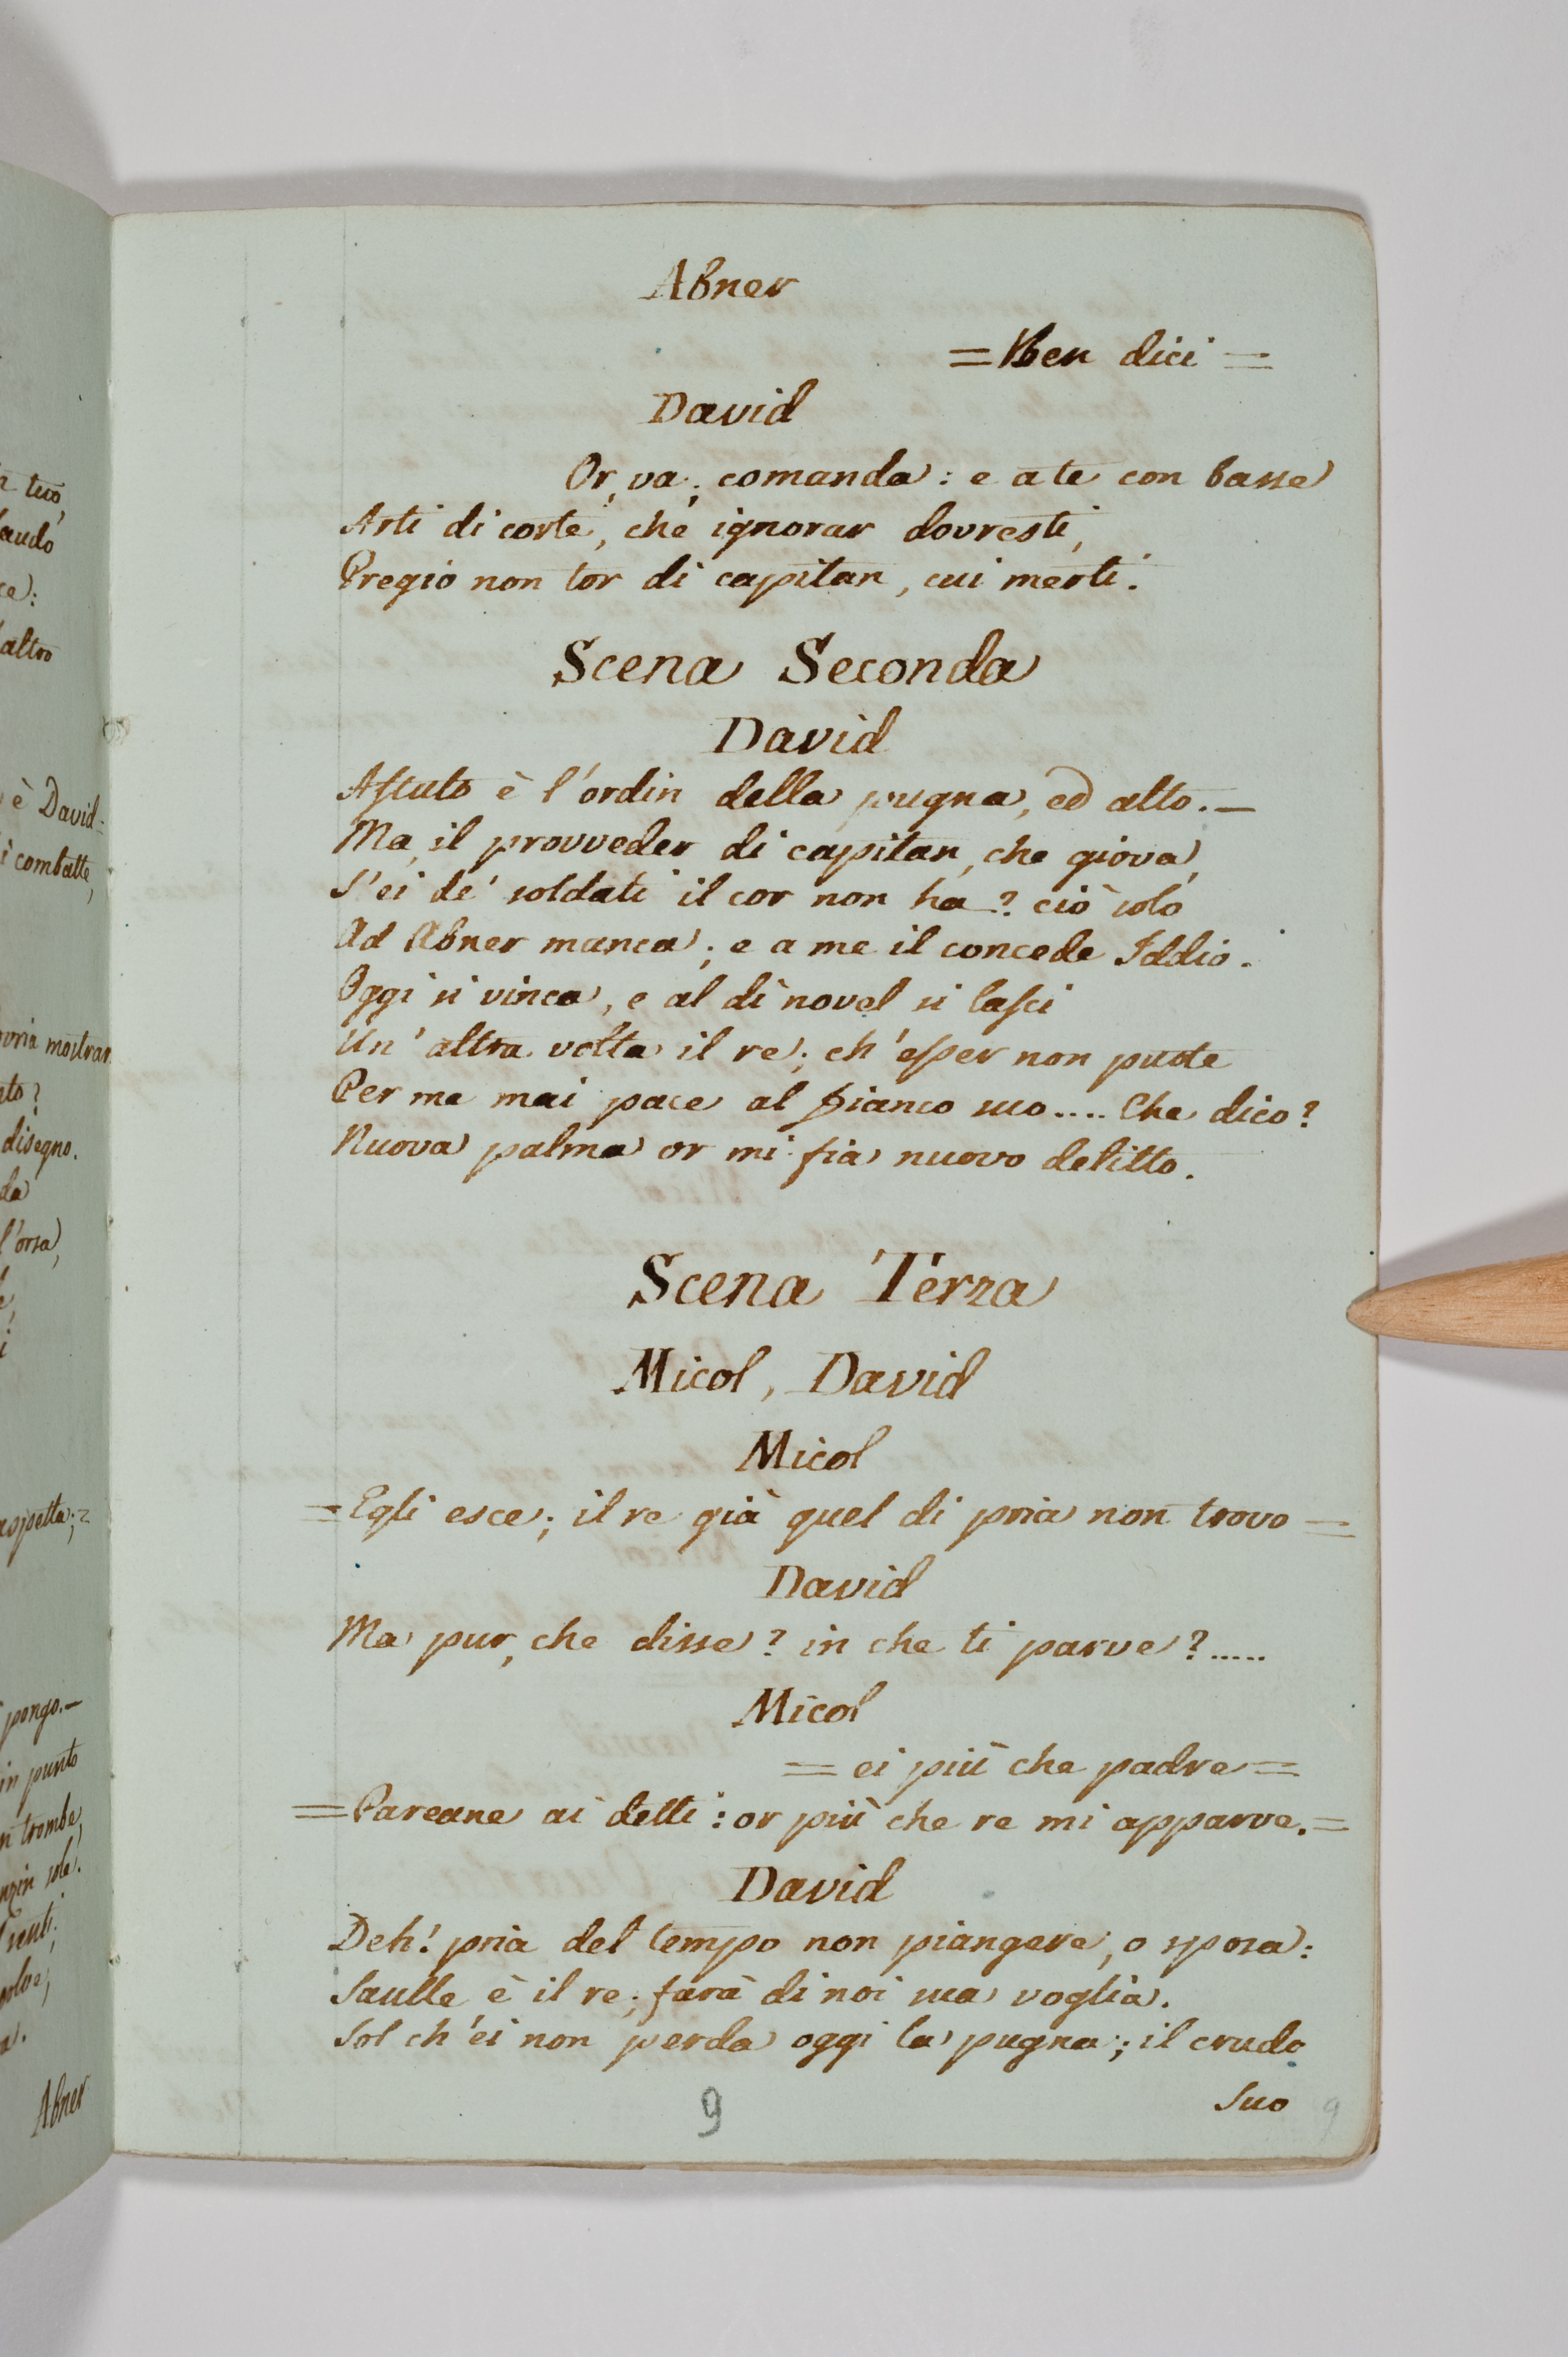 n tuo,
laudo
ce:
altro
è David-
i combatte,
mostrar
to?
disegno.
da
l'orsa,
aspetta; =
pongo. —
in punto
n trombe,
Abner
Abner
= Ben dici =
David
Or, va; comanda: e a te con basse
Arti di corte, che ignorar dovresti,
Pregio non tor di capitan, cui merti.
Scena Seconda
David
Astuto è l'ordin della pugna, ed alto. —
Ma, il provveder di capitan, che giova,
S'ei de' soldati il cor non ha? ciò solo
Ad Abner manca; e a me il concede Iddio.
Oggi si vinca, e al dì novel si lasci
Un' altra volta il re; ch'esser non puote
Per me mai pace al fianco suo.... Che dico?
Nuova palma or mi fia nuovo delitto.
Scena Terza
Micol, David
Micol
= Egli esce; il re già quel di pria non trovo =
David
Ma pur, che disse? in che ti parve?.....
Micol
= ei più che padre =
= Pareane ai detti: or più che re mi apparve. =
David
Deh! pria del tempo non piangere, o sposa:
Saulle è il re; farà di noi sua voglia.
Sol ch'ei non perda oggi la pugna; il crudo
Suo
9
9